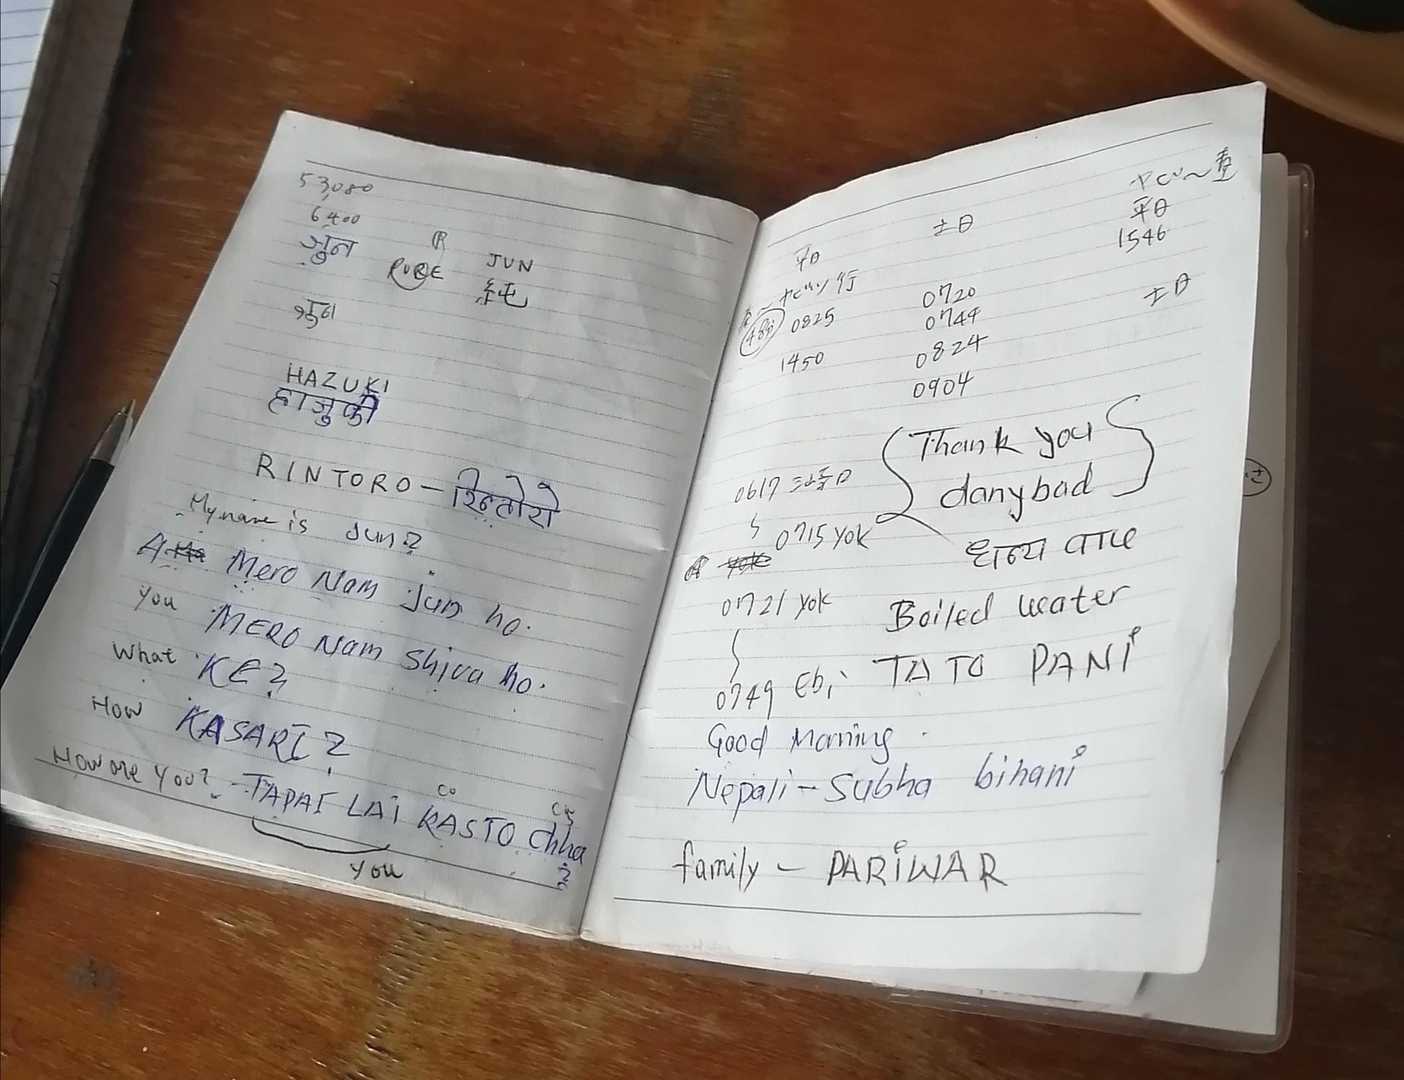 53,080
6400
जुन R JUN
RUBE 純
HAZUKI
हाजुकी
RINTORO - रिन्तोरो
My name is Jun?
A Mero Nam jun ho.
You MERO Nam Shiva ho.
What KE?
How KASARI?
How are you? - TAPAI LAI KASTO chha ?
you
平日 土日
行
0825 0720
1450 0744
0824
0904
平日
1546
土日
Thank you
danybad
धान्य वाद
0617
0715 yok
0721 yok
0749 Ebi
Boiled water
TATO PANI
Good Morning
Nepali - Subha bihani
family - PARIWAR